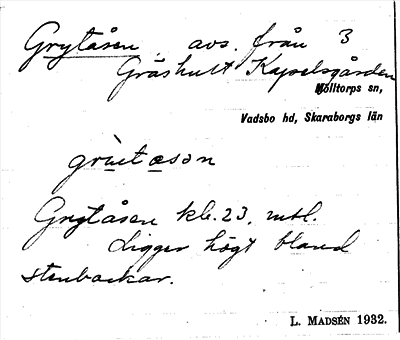 Grytåsen. avs. från 3
Gråshult Kapelsgården
Mölltorps sn,
Vadsbo hd, Skaraborgs län
grùetåsən
Grytåsen kb. 23. mtl.
Ligger högt bland
stenbackar.
L. MADSÉN 1932.